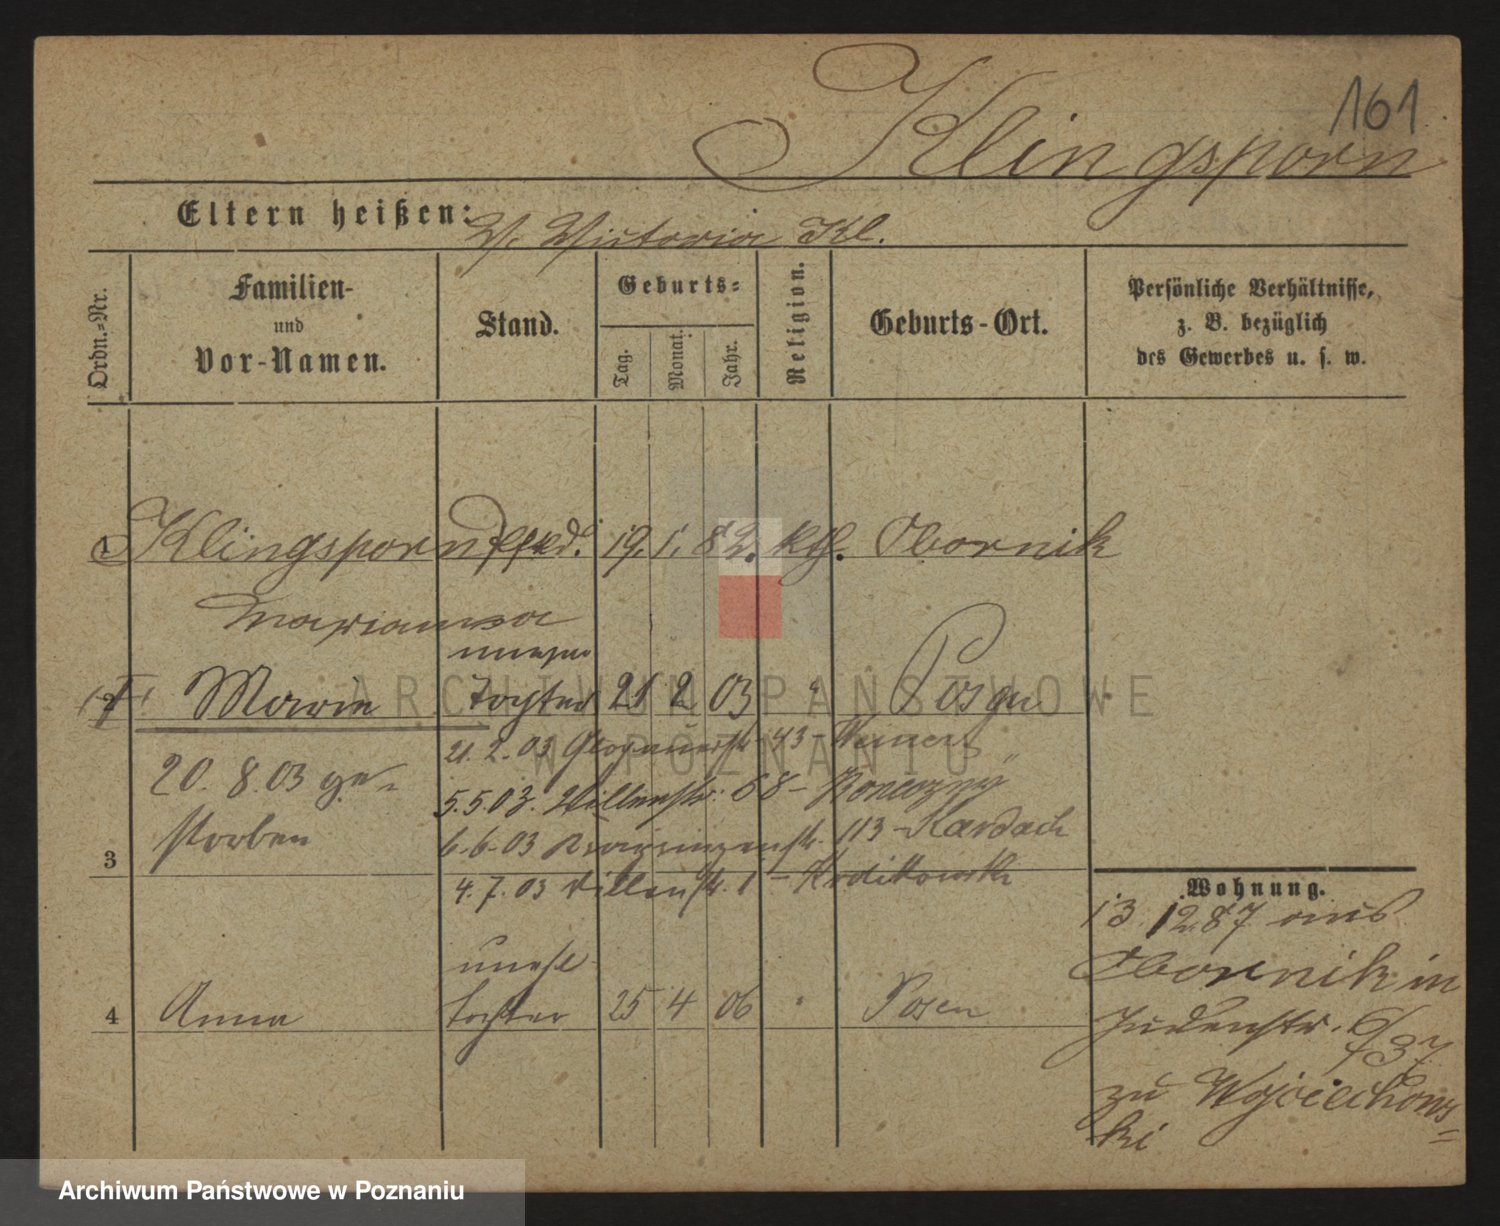 161
Klingsporn
Eltern heißen: V. Victoria Kl.
Ordn.-Nr.
Familien-
und
Vor-Namen.
Stand.
Geburts-
Tag.
Monat.
Jahr.
Religion.
Geburts-Ort.
Persönliche Verhältnisse,
z. B. bezüglich
des Gewerbes u. s. w.
1 Klingsporn 19. 1. 82. kth. Obornik
Marianna
2 Marie Tochter 21 2 03 " Posen
21. 2. 03 43
20. 8. 03 ge-
5. 5. 03. 68 -
storben
6. 6. 03 113 - Kardach
3
4. 7. 03 1 -
Wohnung.
13. 12 87 aus
Obornik in
Judenstr. 6/
37
zu Wojciechows-
ki
unehl
4 Anna Tochter 25 4 06 " Posen
ARCHIWUM PAŃSTWOWE
W POZNANIU
Archiwum Państwowe w Poznaniu